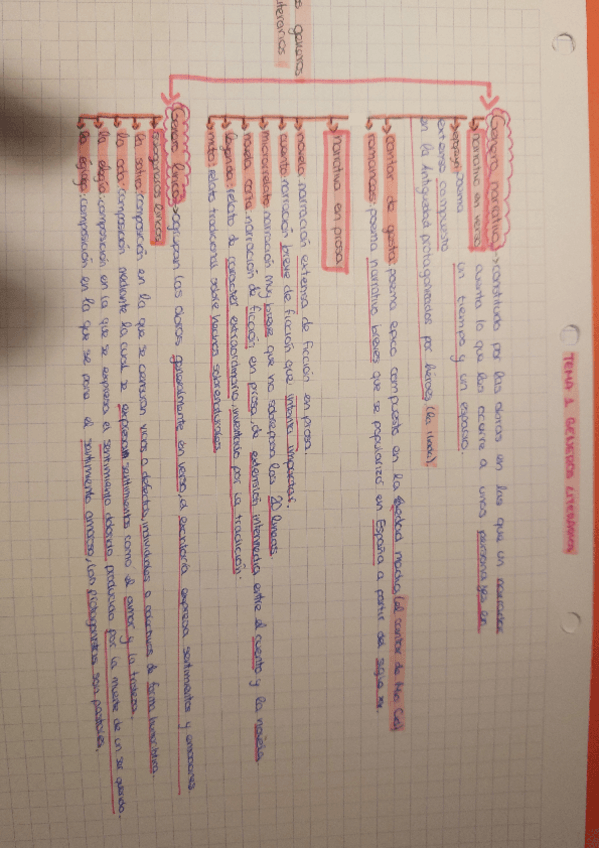 TEMA 1 GENEROS LITERARIOS
Genero narrativo → constituido por las obras en las que un narrador
narrativo en verso cuenta lo que les ocurre a unos personajes en
un tiempo y un espacio.
epopeya: poema
extenso compuesto
en la Antigüedad protagonizados por héroes (la ilíada)
cantar de gesta poema épico compuesto en la edad media (el cantar de Mio Cid)
romances: poema narrativo breves que se popularizó en España a partir del siglo
narrativa en prosa
novela narración extensa de ficción en prosa.
cuento narración breve de ficción que intenta impactar.
microrrelato narración muy breve que no sobrepasa las 20 líneas.
novela corta narración de ficción en prosa, de extensión intermedia entre el cuento y la novela
leyenda: relato de carácter extraordinario, inventado por la tradición.
mito: relato tradicional sobre hechos sobrenaturales
s generos
literarios
Genero lirico > agrupan las obras generalmente en verso, el escritor/a expresa sentimientos y emociones
subgeneros liricos
la satira: composición en la que se censuran vicios o defectos, individuales o colectivos de forma humoristica.
la oda: composición mediante la cual se expresan sentimientos como el amor y la tristeza.
la elegia: composición en la que se expresa el sentimiento doloroso producido por la muerte de un ser querido.
la égloga: composición en la que se pone el sentimiento amoroso, los protagonistas son pastores.